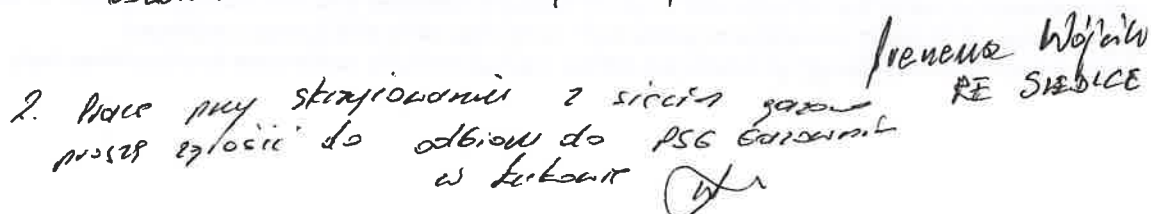 Wójcik
RE SIEDLCE
2. Prace przy skrzyżowaniu z siecią gazową
proszę zgłosić do odbioru do PSG Gazownia
w Łukowie